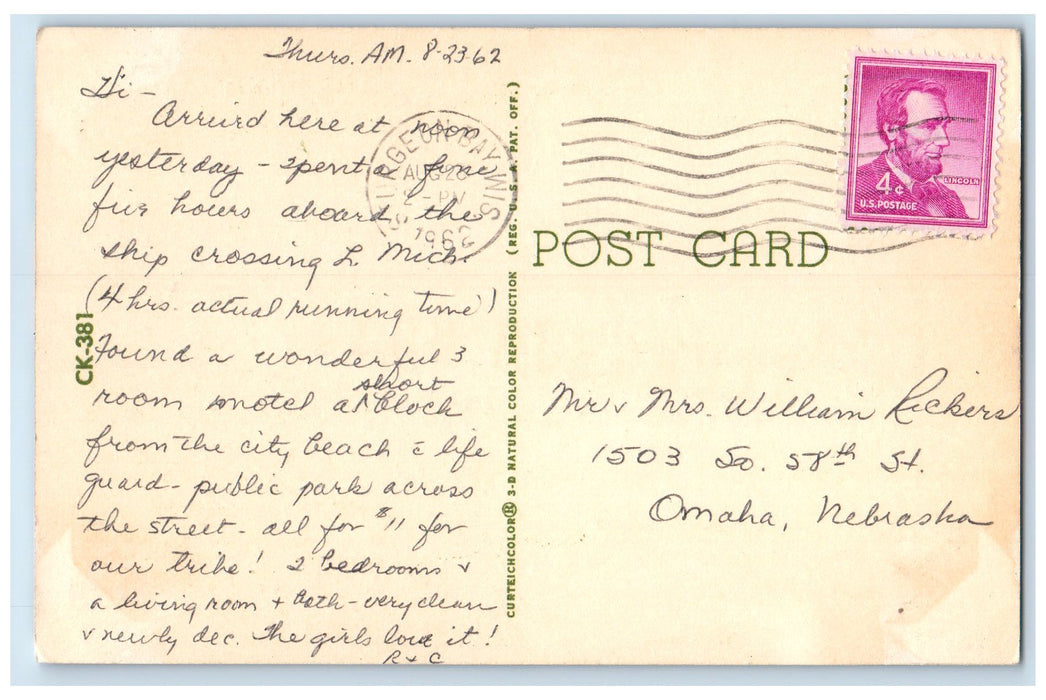 Thurs. AM. 8-23-62
Hi -
Arrived here at noon
yesterday - spent a fine
five hours aboard the
ship crossing L. Mich.
(4 hrs. actual running time)!
Found a wonderful 3
room motel a short block
from the city beach c̄ life
guard - public park across
the street - all for $11 for
our tribe! 2 bedrooms +
a living room + bath - very clean
+ newly dec. The girls love it!
R + C
CK-381
STURGEON BAY WIS
AUG
2 - PM
1962
CURTEICHCOLOR® 3-D NATURAL COLOR REPRODUCTION (REG. U.S.A. PAT. OFF.)
POST CARD
LINCOLN
4¢
U.S. POSTAGE
Mr + Mrs. William Rickers
1503 So. 58th St.
Omaha, Nebraska